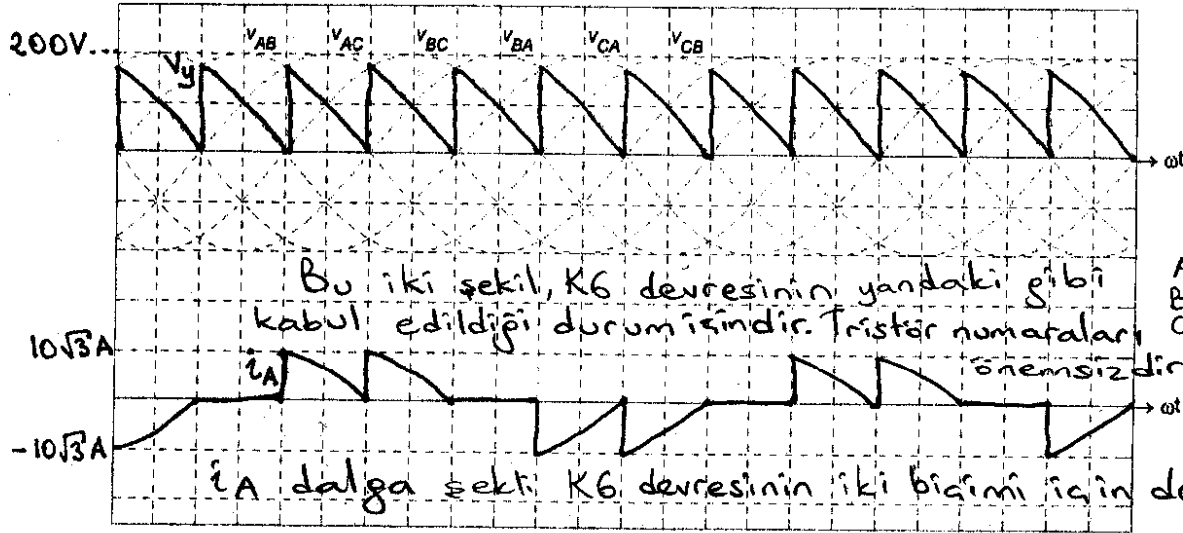 200V...
Vy
VAB VAC VBC VBA VCA VCB
ωt
Bu iki şekil, K6 devresinin yandaki gibi
kabul edildiği durum içindir. Tristör numaraları
önemsizdir
A
B
C
10√3 A
iA
ωt
-10√3 A
iA dalga şekli K6 devresinin iki biçimi için de